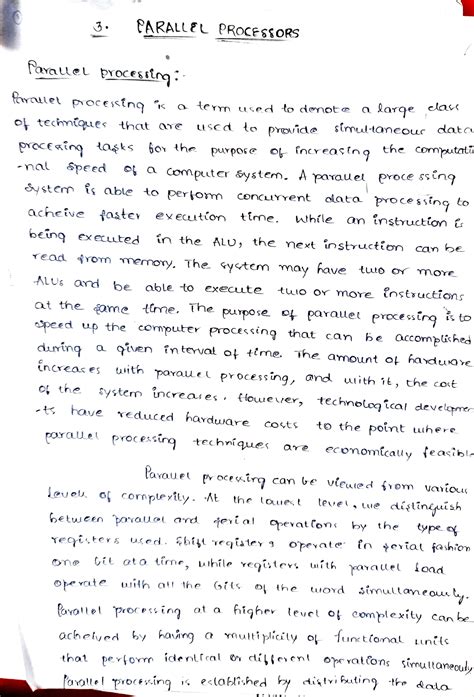 3. PARALLEL PROCESSORS
Parallel processing:-
Parallel processing is a term used to denote a large class
of techniques that are used to provide simultaneous data
processing tasks for the purpose of increasing the computati
-nal speed of a computer system. A parallel processing
system is able to perform concurrent data processing to
acheive faster execution time. While an instruction is
being executed in the ALU, the next instruction can be
read from memory. The system may have two or more
ALUs and be able to execute two or more instructions
at the same time. The purpose of parallel processing is to
speed up the computer processing that can be accomplished
during a given interval of time. The amount of hardware
increases with parallel processing, and with it, the cost
of the system increases. However, technological developme-
-ts have reduced hardware costs to the point where
parallel processing techniques are economically feasible
Parallel processing can be viewed from various
levels of complexity. At the lowest level, we distinguish
between parallel and serial operations by the type of
registers used. Shift registers operate in serial fashion
one bit at a time, while registers with parallel load
operate with all the bits of the word simultaneously.
Parallel processing at a higher level of complexity can be
acheived by having a multiplicity of functional units
that perform identical or different operations simultaneously
Parallel processing is established by distributing the data